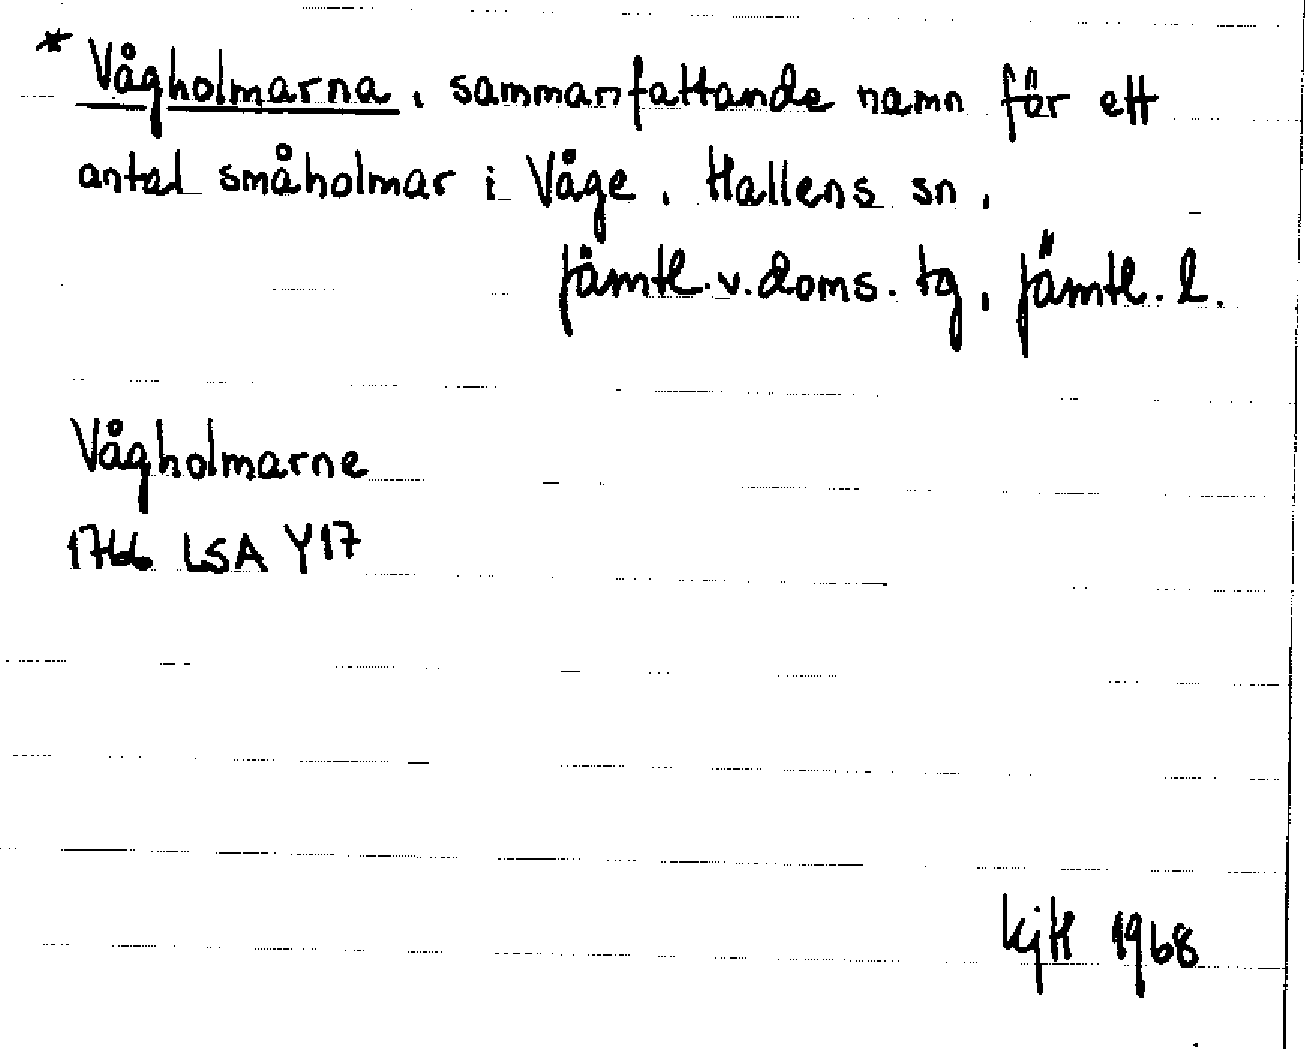 * Vågholmarna, sammanfattande namn för ett
antal småholmar i Våge, Hallens sn,
Jämtl. v. doms. tg, Jämtl. l.
Vågholmarne
1766 LSA Y17
KjH 1968